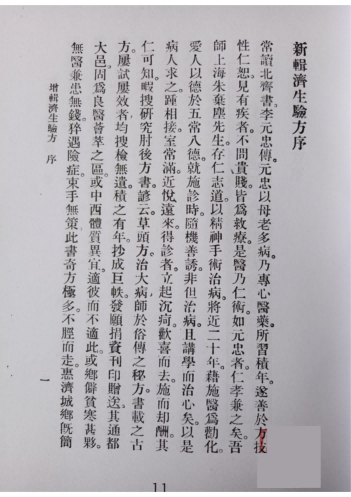 新輯濟生驗方序
常讀北齊書李元忠傳。元忠以母老多病。乃專心醫藥。所習積年。遂善於方技
性仁恕。見有疾者。不問貴賤。皆爲救療。是醫乃仁術。如元忠者。仁孝兼之矣。吾
師上海朱棄塵先生。存仁志道。以精神手術治病。將近二十年。藉施醫爲勸化。
愛人以德。於五常八德。就施診時。隨機善誘。非但治病。且講學而治心矣。以是
病人求之。踵相接。室常滿。近悅遠來。得診者。立起沉疴。歡喜而去。施而却酬。其
仁可知。暇搜研究肘後方書。諺云。草頭方。治大病。師於俗傳之秘方。書載之古
方。屢試屢效者。均搜檢無遺。積之有年。抄成巨帙。發願捐資刊印贈送。其通都
大邑。固爲良醫薈萃之區。或中西體質異宜。適彼而不適此。或鄉僻貧寒甚夥。
無醫兼患無錢。猝遇險症。束手無策。此書奇方極多。不脛而走。惠濟城鄉。旣簡
增輯濟生驗方 序
一
11